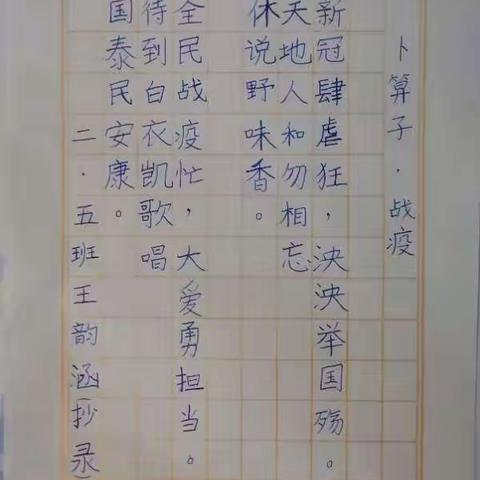 卜算子·战疫
新冠肆虐狂，泱泱举国殇。
天地人和勿相忘
休说野味香。
全民战疫忙，大爱勇担当。
待到白衣凯歌唱
国泰民安康。
二·五班王韵涵抄录）